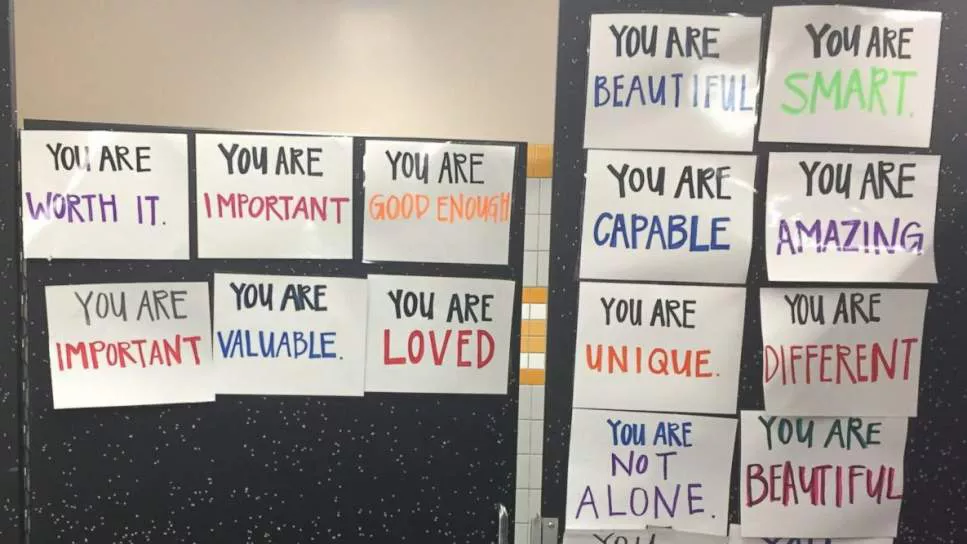 YOU ARE
WORTH IT.
YOU ARE
IMPORTANT
YOU ARE
GOOD ENOUGH
YOU ARE
IMPORTANT
YOU ARE
VALUABLE.
YOU ARE
LOVED
YOU ARE
BEAUTIFUL
YOU ARE
SMART.
YOU ARE
CAPABLE
YOU ARE
AMAZING
YOU ARE
UNIQUE.
YOU ARE
DIFFERENT
YOU ARE
NOT
ALONE.
YOU ARE
BEAUTIFUL
YOU